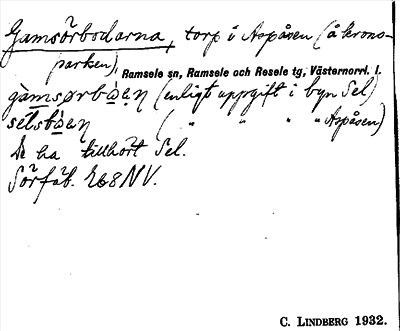 Gamsörbodarna, torp i Aspåsen (å krono-
parken),
Ramsele sn, Ramsele och Resele tg, Västernorrl. l.
gàmsørbò̱a̱n (enligt uppgift i byn Sel)
sélsbò̱a̱n ( " " " " Aspåsen)
De ha tillhört Sel.
Sörfåt. 268 NV.
C. LINDBERG 1932.